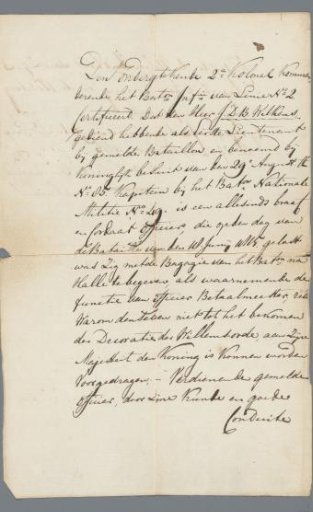 Den ondergetekende 2e Kolonel Komman-
derende het Batn Infie van Linie No 2
Certificeert Dat den Heer J.D.B. Wilkens
gediend hebbende als eerste Lieutenant
bij gemelde Bataillon en benoemd bij
Koninglijk besluit van den 29e August
No Kapitein bij het Batn Nationale
Militie No is een allesinds braaf
en officier, die op den dag van
de Bataille van den 18 Junij 1815 gelast
was Zig met de Bagagie van het Batn na
Halle te begeven als waarnemende de
functie van officier Betaalmeester,
Waarom denzelven niet tot het bekomen
der Decoratie der Willemsorde aan Zijne
Majesteit den Koning is kunnen worden
Voorgedragen, - Verdienende gemelde
officier, door Zijne Kunde en goede
Conduite